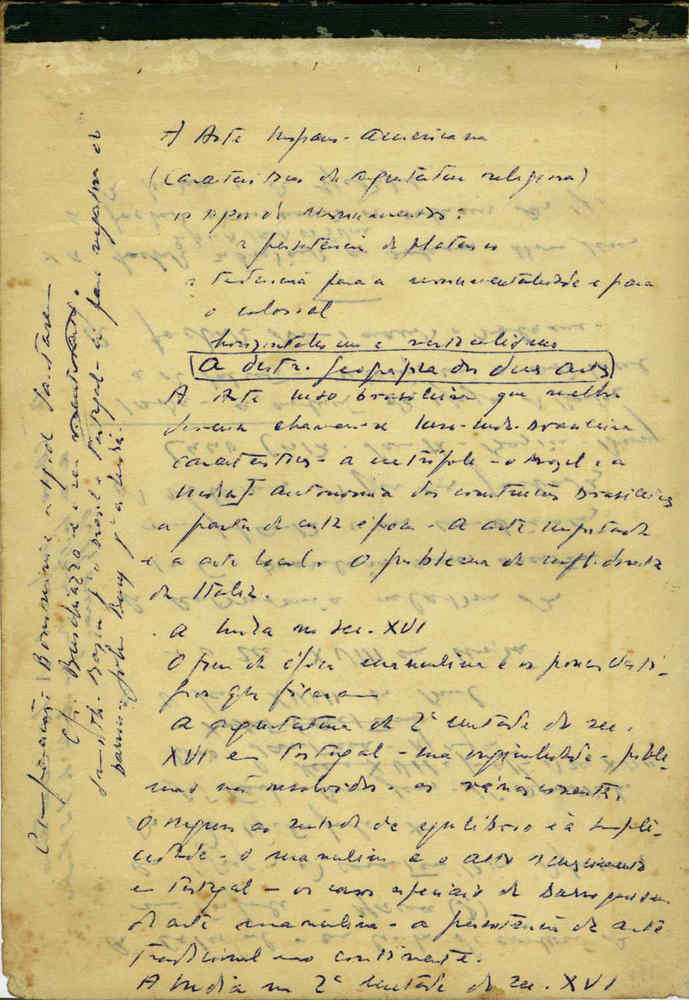 A Arte hispano-americana
(características da arquitectura religiosa)
os tipos de monumentos:
a persistencia do plateresco
a tendencia para a monumentalidade e para
o colossal
horizontalismo e verticalismo
A distr. geografica das duas artes
A Arte luso brasileira que melhor
chamar-se luso-indo-brasileira
características - a metrópole - o Brazil e a
India autonomia das construções brasileiras
a partir de certa época - A arte importada
e a arte local. O problema da infl. directa
da Italia.
. A India no sec. XVI
O fim da época manuelina e os poucos vesti-
gios que ficaram
A arquitectura da 2ª metade do sec.
XVI em Portugal - sua originalidade - proble-
mas não resolvidos - as várias correntes.
O regresso ao sentido de equilibrio e à simpli-
cidade - o manuelino e o renascimento
em Portugal - os casos especiais de
da arte manuelina - a persistencia da arte
tradicional no continente.
A India na 2ª metade do sec. XVI
Comparação: Borromini e
Cf. Buschiazzo
Smith. Bazin p. o Brasil e Portugal
barroco John Bury p. a India.